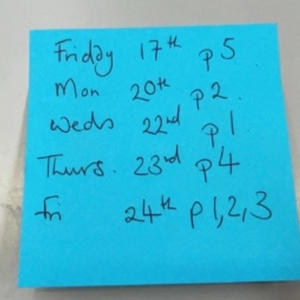 Friday 17th p5
Mon 20th p2.
Weds 22nd p1
Thurs. 23rd p4
Fri 24th p1,2,3